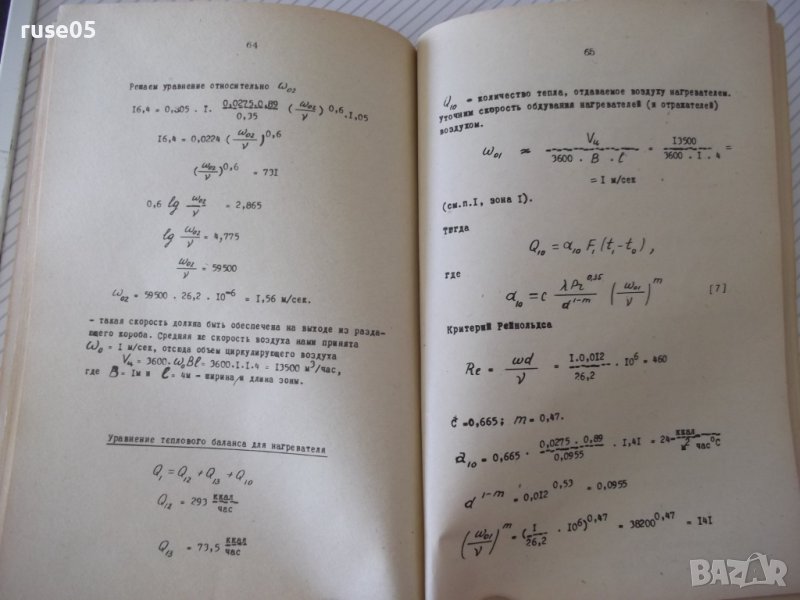 ruse05
64
Решаем уравнение относительно ω₀₂
I6,4 = 0,305 . I. 0,0275.0,89 / 0,35 (ω₀₂/ν)^0,6 . I,05
I6,4 = 0,0224 (ω₀₂/ν)^0,6
(ω₀₂/ν)^0,6 = 73I
0,6 lg ω₀₂/ν = 2,865
lg ω₀₂/ν = 4,775
ω₀₂/ν = 59500
ω₀₂ = 59500 . 26,2 . I0^-6 = I,56 м/сек.
- такая скорость должна быть обеспечена на выходе из разда-
ющего короба. Средняя же скорость воздуха нами принята
ω₀ = I м/сек, отсюда объем циркулирующего воздуха
Vц = 3600. ω₀Bl = 3600.I.I.4 = I3500 м³/час,
где B = Iм и l = 4м - ширина и длина зоны.
Уравнение теплового баланса для нагревателя
Q₁ = Q₁₂ + Q₁₃ + Q₁₀
Q₁₂ = 293 ккал/час
Q₁₃ = 73,5 ккал/час
65
Q₁₀ - количество тепла, отдаваемое воздуху нагревателем.
Уточним скорость обдувания нагревателей (и отражателей)
воздухом.
ω₀₁ = Vц / 3600 . B . l = I3500 / 3600 . I . 4 =
= I м/сек
(см.п.I, зона I).
Тогда
Q₁₀ = α₁₀ F₁ (t₁ - t₀),
где
α₁₀ = C λ Pr^0,35 / d^1-m (ω₀₁/ν)^m [7]
Критерий Рейнольдса
Re = ωd/ν = I.0,0I2 / 26,2 . I0⁶ = 460
C =0,665; m = 0,47.
α₁₀ = 0,665 . 0,0275 . 0,89 / 0,0955 . I,4I = 24 ккал / м² час°C
d^1-m = 0,0I2^0,53 = 0,0955
(ω₀₁/ν)^m = (I/26,2 . I0⁶)^0,47 = 38200^0,47 = I4I
BAZAR
.bg